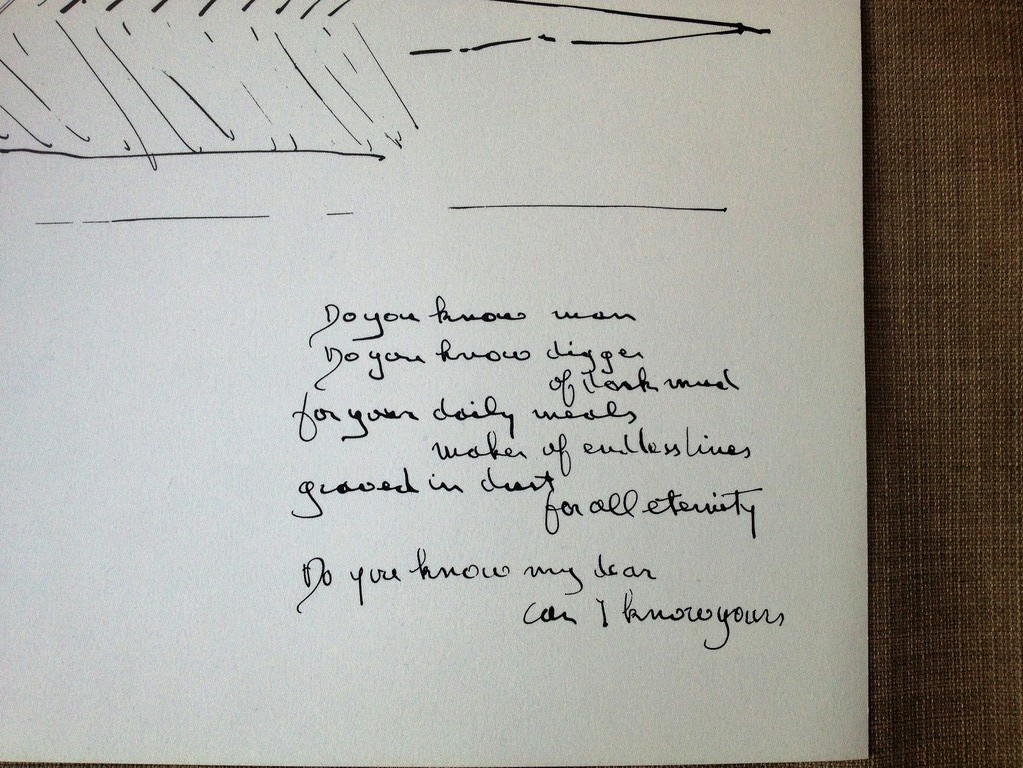 Do you know man
Do you know digger
of dark mud
for your daily meals
maker of endless lines
graved in dust
for all eternity
Do you know my dear
can I know yours